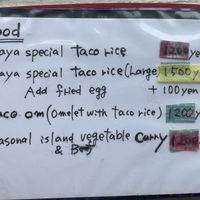 ood
aya special taco rice 1200ye
aya special taco rice (Large 1500y
Add fried egg +100yen
aco om (Omelet with taco rice) 1200y
asonal island vegetable Curry 1200
& Beef